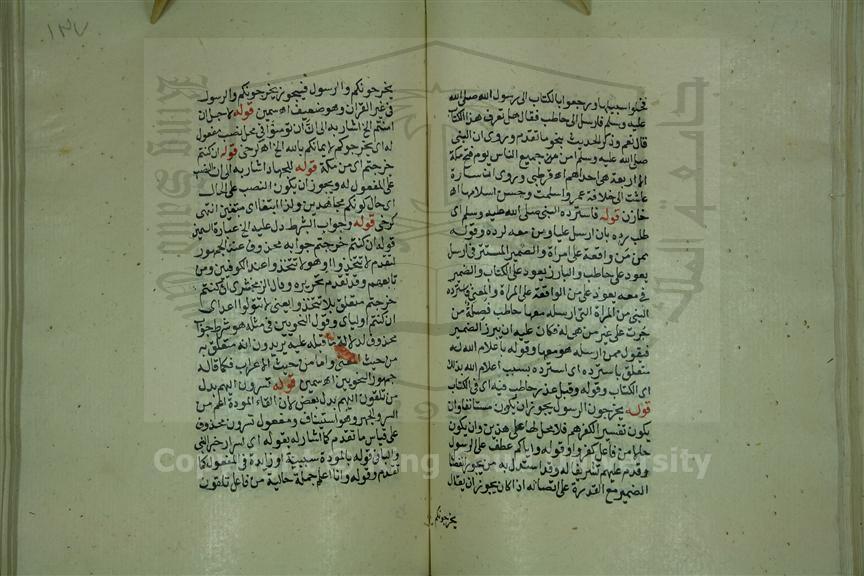 فخلوا سبيلها ورجعوا بالكتاب الى رسول الله صلى الله
عليه وسلم فارسل الى حاطب فقال هل تعرف هذا الكتاب
قال نعم وذكر الحديث بنحو ما تقدم وروى ان النبى
صلى الله عليه وسلم امن من جميع الناس يوم فتح مكة
الا اربعة هى احداهم اه قرطبى وروى ان سارة
عاشت الى خلافة عمر واسلمت وحسن اسلامها اه
خازن قوله فاسترده النبى صلى الله عليه وسلم اى
طلب رده بان ارسل عليا ومن معه لرده وقوله
ممن من واقعة على امراة والضمير المستتر فى ارسل
يعود على حاطب والبارز يعود على الكتاب والضمير
فى معه يعود على من الواقعة على المراة والمعنى فاسترده
النبى من المراة التى ارسله معها حاطب فصلة من
جرت على غير من هى له فكان عليه ان يبرز الضمير
فيقول ممن ارسله هو معها وقوله باعلام الله له
متعلق باسترده اى استرده بسبب اعلام الله له بذلك
اى الكتاب وقوله وقبل عذر حاطب فيه اى فى الكتاب
قوله يخرجون الرسول يجوز ان يكون مستانفا وان
يكون تفسيرا لكفرهم فلا محل لها على هذين وان يكون
حالا من فاعل كفروا وقوله واياكم عطف على الرسول
وقدم عليهم تشريفا له وقد استدل به من يجوز انفصال
الضمير مع القدرة على اتصاله اذ كان يجوز ان يقال
يخرجونكم
١٣٧
يخرجونكم والرسول فيجوز يخرجونكم والرسول
فى غير القران وهو ضعيف اه سمين قوله لاجل ان
امنتم الخ اشار به الى ان ان تومنوا فى محل نصب مفعول
له اى يخرجوكم لايمانكم بالله الخ اه كرخى قوله ان كنتم
خرجتم اى من مكة قوله للجهاد اشار به الى ان النصب
على المفعول له ويجوز ان يكون النصب على الحال
اى حال كونكم مجاهدين ولذا ابتغا اى مبتغين انتهى
كرخى قوله وجواب الشرط دل عليه الخ عبارة السمين
قوله ان كنتم خرجتم جوابه محذوف عند الجمهور
لتقدم لا تتخذوا او هو لا تتخذوا عند الكوفين ومن
تابعهم وقد تقدم تحريره وقال الزمخشرى ان كنتم
خرجتم متعلق بلا تتخذوا يعنى لا تتولوا اعداى
ان كنتم اولياى وقول النحويين فى مثله هو شرط جوابه
محذوف لدلالة ما قبله عليه يريدون انه متعلق به
من حيث المعنى واما من حيث الاعراب فكما قاله
جمهور النحويين اه سمين قوله تسرون اليهم بدل
من تلقون اليهم بدل بعض لان القاء المودة اعم من
السر والجهر وهو استيناف ومفعول تسرون محذوف
على قياس ما تقدم كما اشار له بقوله اى اسرار خبر النبى
والباء فى قوله بالمودة سببية او زايدة فى المفعول كما
تقدم وقوله وانا اعلم جملة حالية من فاعل تلقون
Copyright © King Saud University